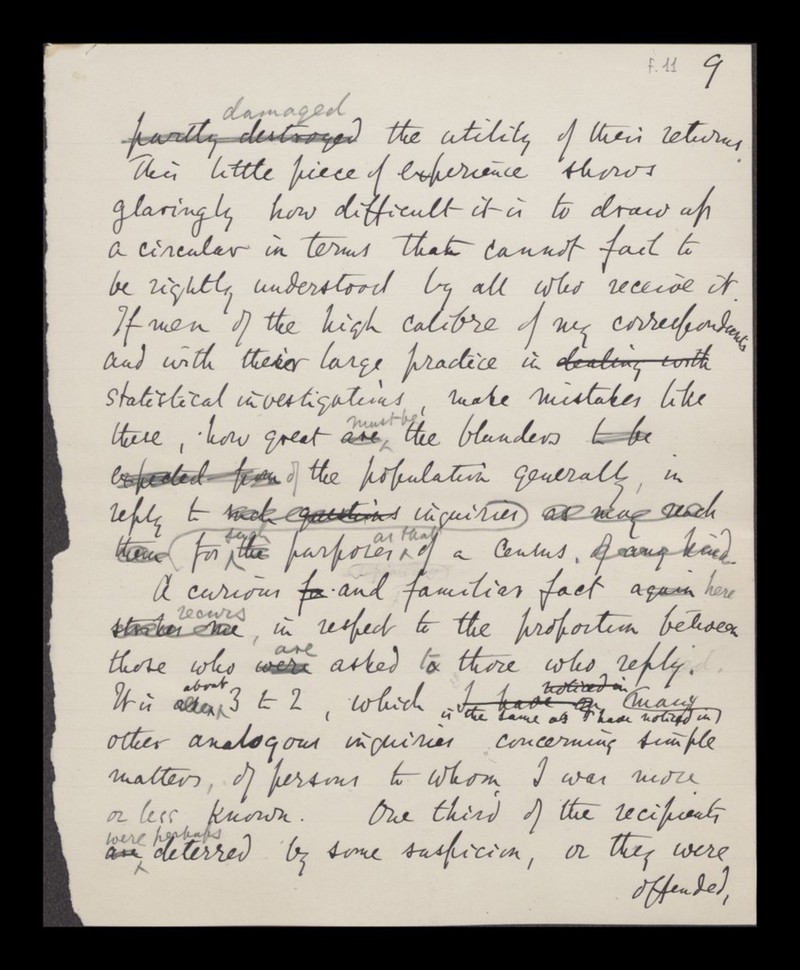 f.11 9
damaged
partly destroyed the utility of their returns.
This little piece of experience shows
glaringly how difficult it is to draw up
a circular in terms that cannot fail to
be rightly understood by all who receive it.
If men of the high calibre of my correspondents
and with their large practice in dealing with
statistical investigations, make mistakes like
must be
these, how great are the blunders to be
expected from of the population generally, in
reply to such questions inquiries as may reach
such as that
them for the purposes of a Census, of any kind.
A curious fa and familiar fact again here
recurs
strikes me, in respect to the proportion between
are
those who were asked to those who reply.
about noticed in
It is 3 to 2, which I have on many
is the same as I have noticed in
other analogous inquiries concerning simple
matters, of persons to whom I was more
or less known. One third of the recipients
were perhaps
are deterred by some suspicion, or they were
offended,